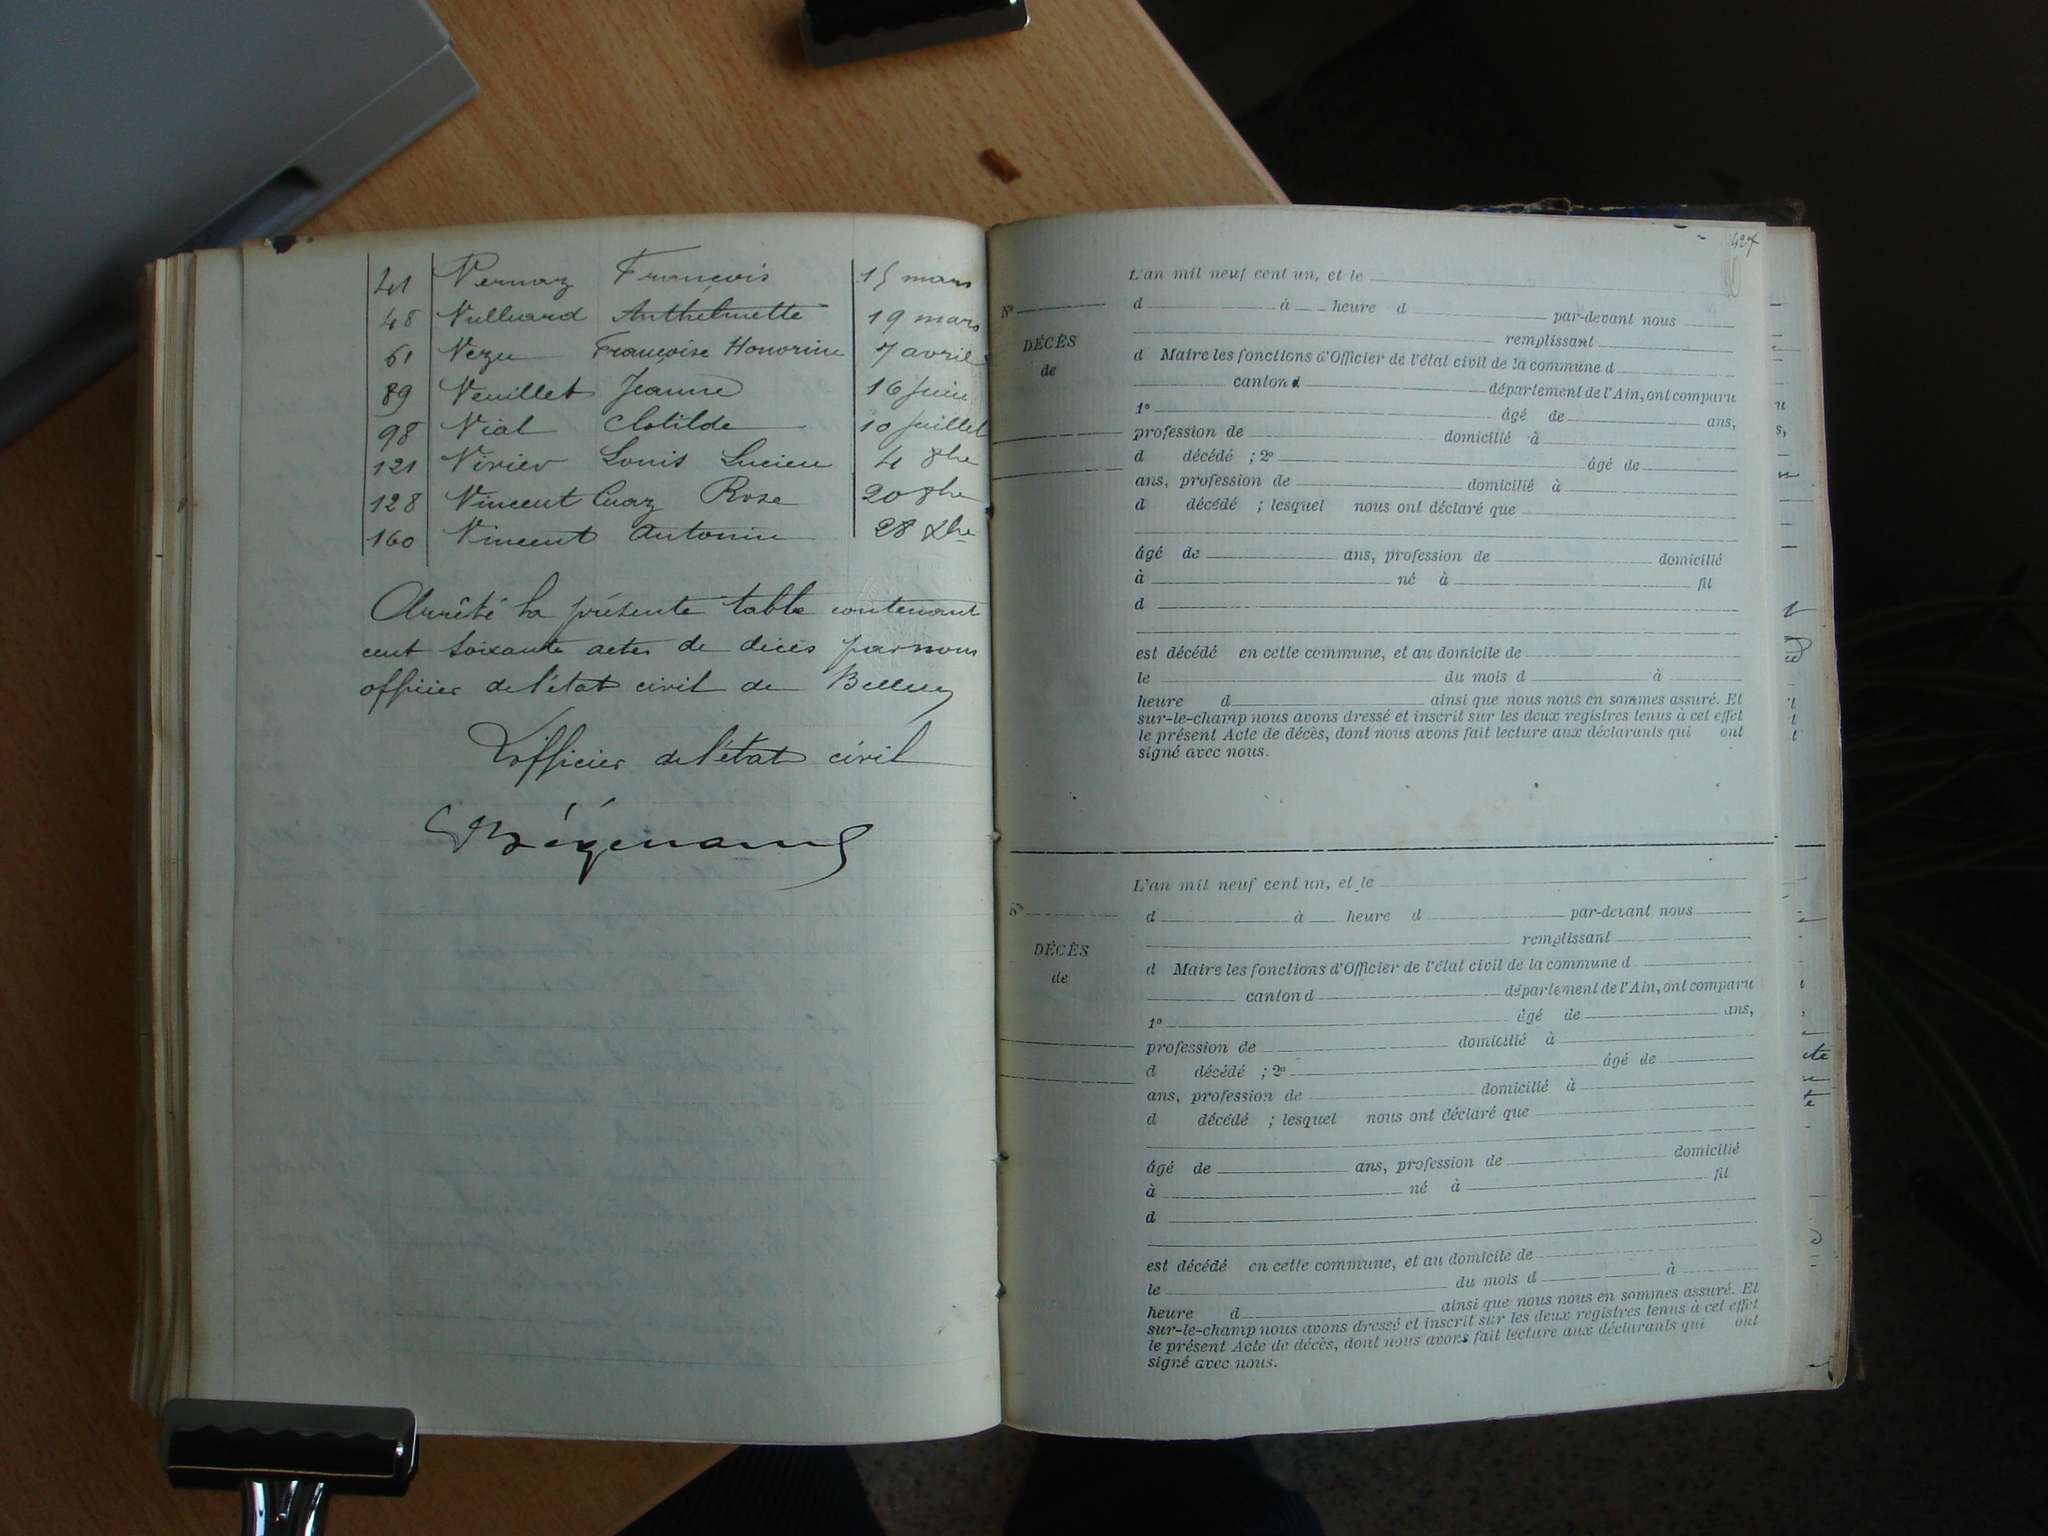 41 Vernaz François 15 mars
48 Vulliard Anthelmette 19 mars
61 Vezu Françoise Honorine 7 avril
89 Veuillet Jeanne 16 juin
98 Vial Clotilde 10 juillet
121 Virieu Louis Lucien 4 8bre
128 Vincent Cuaz Rose 20 8bre
160 Vincent Antonin 28 Xbre
Arrêté la présente table contenant
cent soixante actes de décès par nous
officier de l'état civil de Belley
L'officier de l'état civil
427
L'an mil neuf cent un, et le
N°
d à heure d par-devant nous
remplissant
DÉCÈS
de
d Maire les fonctions d'Officier de l'état civil de la commune d
canton d département de l'Ain, ont comparu
1° âgé de ans,
profession de domicilié à
d décédé ; 2° âgé de
ans, profession de domicilié à
d décédé ; lesquel nous ont déclaré que
âgé de ans, profession de domicilié
à né à fil
d
est décédé en cette commune, et au domicile de
le du mois d à
heure d ainsi que nous nous en sommes assuré. Et
sur-le-champ nous avons dressé et inscrit sur les deux registres tenus à cet effet
le présent Acte de décès, dont nous avons fait lecture aux déclarants qui ont
signé avec nous.
L'an mil neuf cent un, et le
N°
d à heure d par-devant nous
remplissant
DÉCÈS
de
d Maire les fonctions d'Officier de l'état civil de la commune d
canton d département de l'Ain, ont comparu
1° âgé de ans,
profession de domicilié à
d décédé ; 2° âgé de
ans, profession de domicilié à
d décédé ; lesquel nous ont déclaré que
âgé de ans, profession de domicilié
à né à fil
d
est décédé en cette commune, et au domicile de
le du mois d à
heure d ainsi que nous nous en sommes assuré. Et
sur-le-champ nous avons dressé et inscrit sur les deux registres tenus à cet effet
le présent Acte de décès, dont nous avons fait lecture aux déclarants qui ont
signé avec nous.